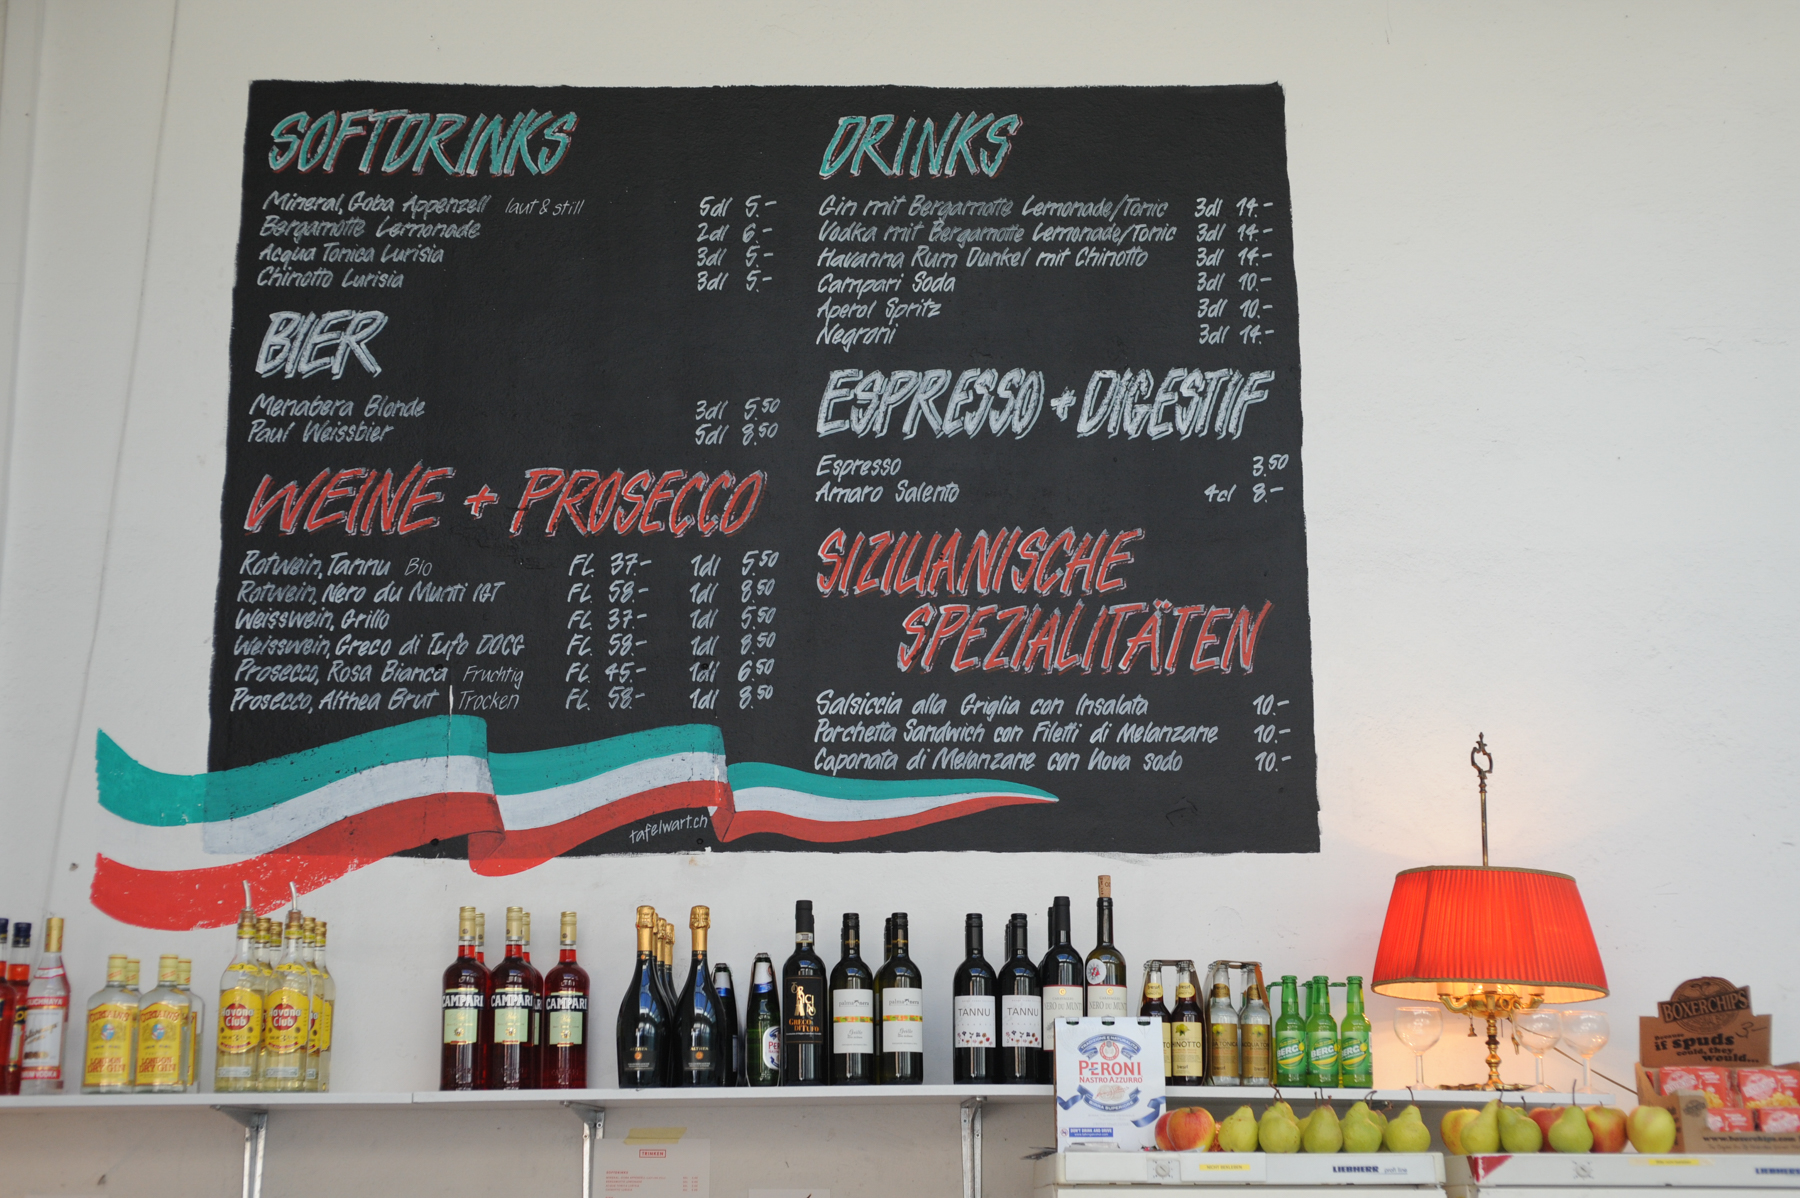 SOFTDRINKS
Mineral, Goba Appenzell laut & still 5dl 5.-
Bergamotte Lemonade 2dl 6.-
Acqua Tonica Lurisia 3dl 5.-
Chinotto Lurisia 3dl 5.-
BIER
Menabera Blonde 3dl 5.50
Paul Weissbier 5dl 8.50
WEINE + PROSECCO
Rotwein, Tannu Bio FL. 37.- 1dl 5.50
Rotwein, Nero du Munti IGT FL. 58.- 1dl 8.50
Weisswein, Grillo FL. 37.- 1dl 5.50
Weisswein, Greco di Tufo DOCG FL. 58.- 1dl 8.50
Prosecco, Rosa Bianca Fruchtig FL. 45.- 1dl 6.50
Prosecco, Althea Brut Trocken FL. 58.- 1dl 8.50
tafelwart.ch
DRINKS
Gin mit Bergamotte Lemonade/Tonic 3dl 14.-
Vodka mit Bergamotte Lemonade/Tonic 3dl 14.-
Havanna Rum Dunkel mit Chinotto 3dl 14.-
Campari Soda 3dl 10.-
Aperol Spritz 3dl 10.-
Negroni 3dl 14.-
ESPRESSO + DIGESTIIF
Espresso 3.50
Amaro Salento 4cl 8.-
SIZILIANISCHE
SPEZIALITÄTEN
Salsiccia alla Griglia con Insalata 10.-
Porchetta Sandwich con Filetti di Melanzane 10.-
Caponata di Melanzane con Uova sodo 10.-
LONDON
DRY GIN
LONDON
DRY GIN
Havana
Club
Havana
Club
CAMPARI
CAMPARI
CAMPARI
ALTHEA
ALTHEA
GRECO
DI TUFO
TANNU
TANNU
NERO DU MUNTI
NERO DU MUNTI
PERONI
NASTRO AZZURRO
BERG
BERG
BERG
BOXERCHIPS
if spuds
could, they
would...
www.boxerchips.com
LIEBHERR
LIEBHERR
TRINKEN